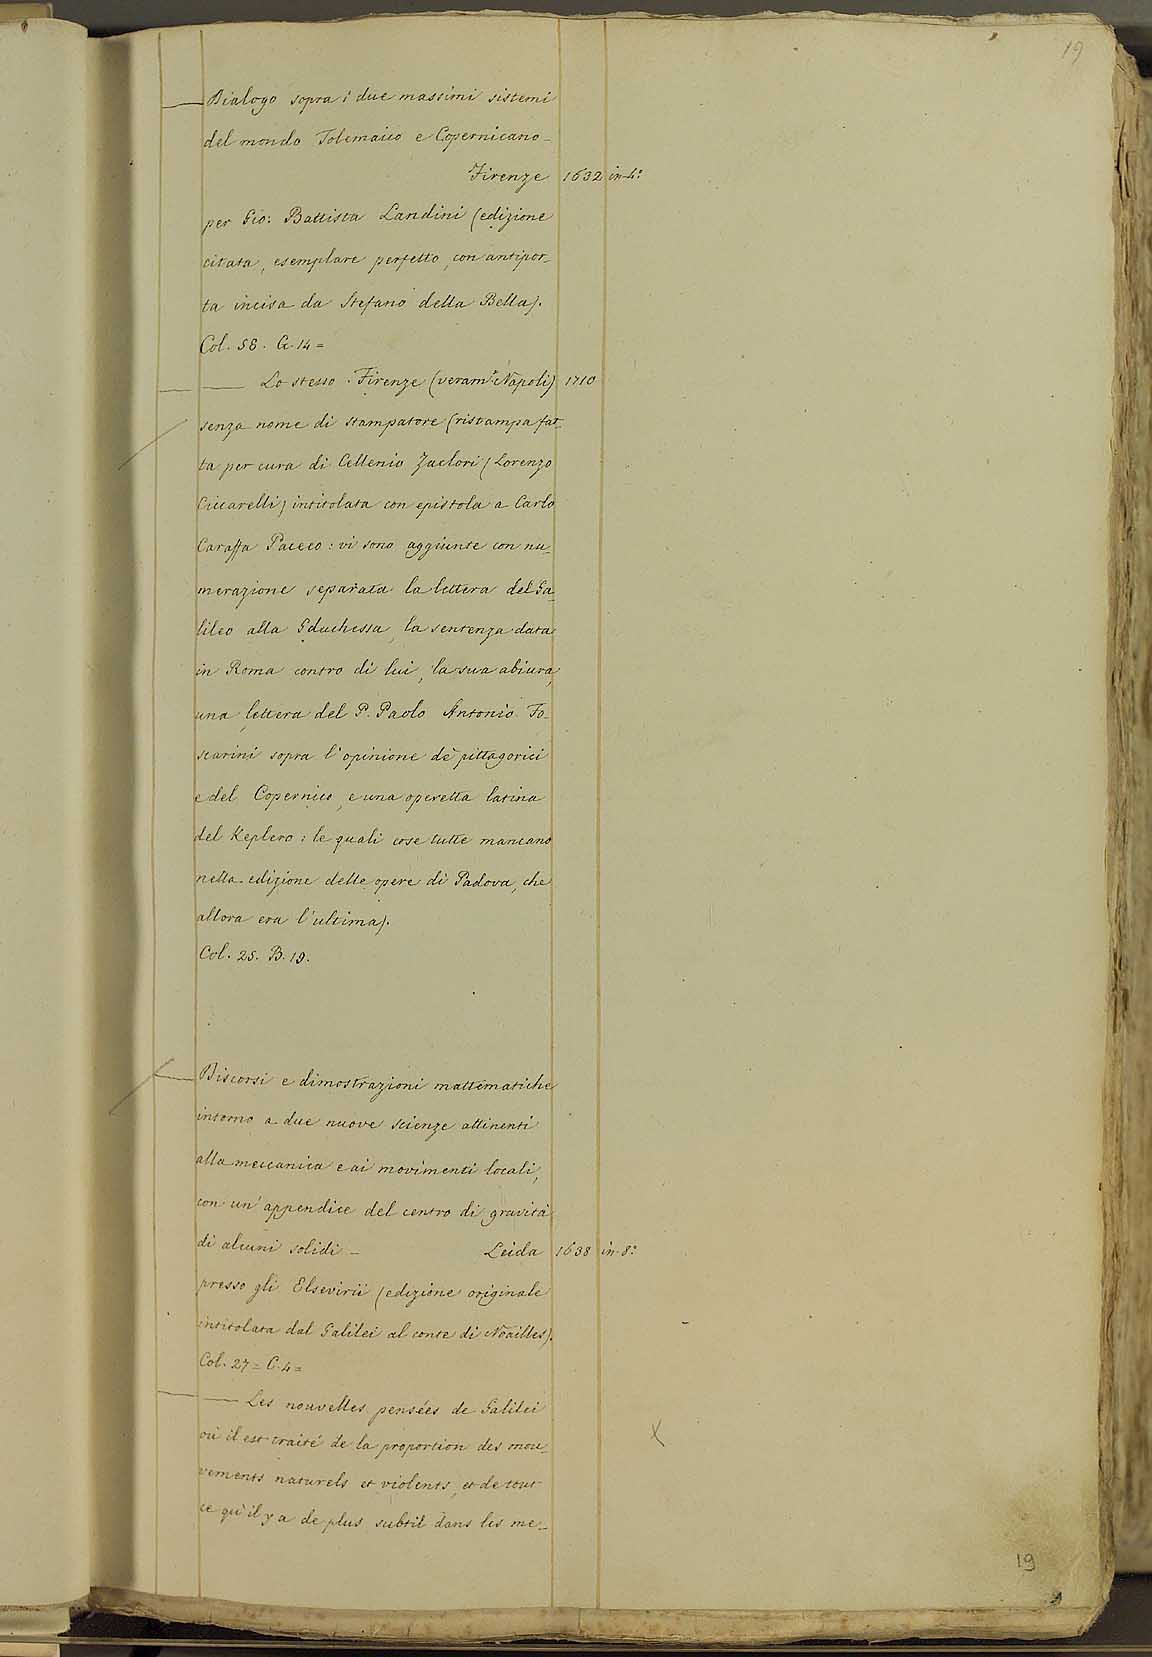 19
Dialogo sopra i due massimi sistemi
del mondo Tolemaico e Copernicano_
Firenze 1632 in-4:
per Gio: Battista Landini (edizione
citata, esemplare perfetto, con antipor_
ta incisa da Stefano della Bella).
Col. 58. C. 14=
Lo stesso. Firenze (veram.e Napoli) 1710
senza nome di stampatore (ristampa fat_
ta per cura di Cellenio Zaclori (Lorenzo
Ciccarelli) intitolata con epistola a Carlo
Caraffa Paceco: vi sono aggiunte con nu_
merazione separata la lettera del Ga_
lileo alla Gduchessa, la sentenza data
in Roma contro di lui, la sua abiura,
una lettera del P. Paolo Antonio Fo_
scarini sopra l'opinione de' pittagorici
e del Copernico, e una operetta latina
del Keplero: le quali cose tutte mancano
nella edizione delle opere di Padova, che
allora era l'ultima).
Col. 25. B. 19.
Discorsi e dimostrazioni mattematiche
intorno a due nuove scienze attinenti
alla meccanica e ai movimenti locali,
con un'appendice del centro di gravità
di alcuni solidi_ Leida 1638 in-8:
presso gli Elsevirii (edizione originale
intitolata dal Galilei al conte di Noailles).
Col. 27= C. 4=
Les nouvelles pensées de Galilei
où il est traité de la proportion des mou_
vements naturels et violents, et de tout
ce qu'il y a de plus subtil dans les me_
19